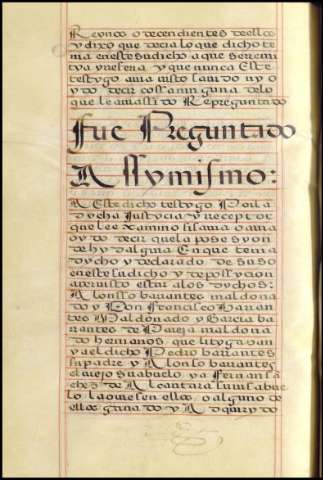 Reynos o decendientes dellos
y dixo que decia lo que dicho te
nia en este su dicho a que se remi
tya y refería y que nunca este
testygo avia visto savido ny o
ydo decir cossa ninguna de lo
que le a nassido Repreguntado
fue Preguntado
Assymismo:
A Este dicho testygo Por la
dycha Justycia y receptor
que le examino si savia o avia
oydo decir que la posesyon
de hydalguia En que tenia
dycho y declarado de suso
en este su dicho y de possycion
aver visto estar a los dychos:
Alonsso barrantes maldona
do y Don francisco Barran
tes Maldonado y Garcia bar
rantes de Pareja maldona
do hermanos que lityga van
y a el dicho Pedro barrantes
su padre y Alonso barrantes
el viejo su abuelo y a fernan sa
chez de Alcantara su visabue
lo la ouiesen ellos o alguno de
ellos ganado y Adquirydo